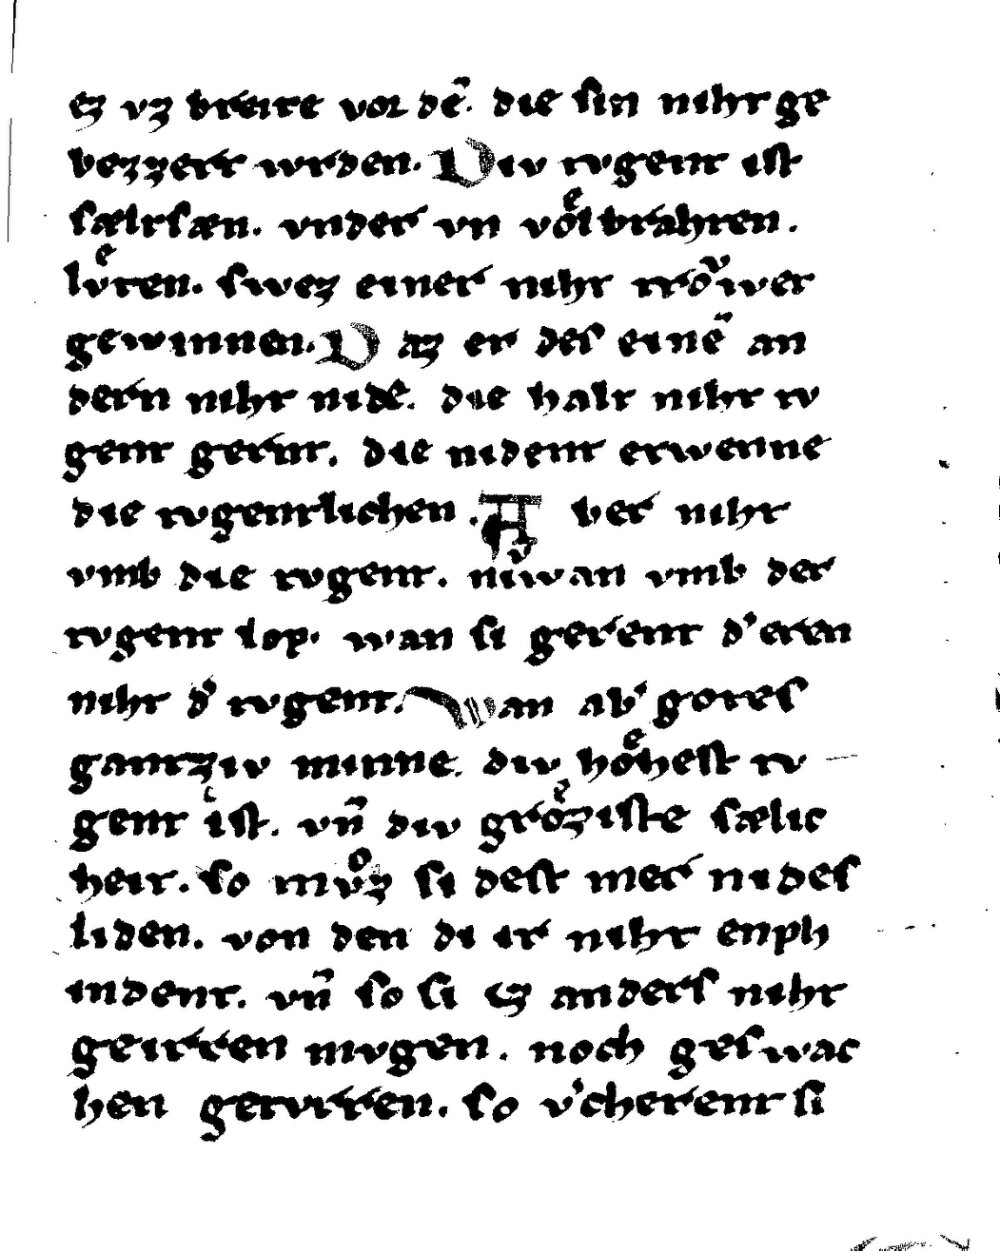 ez vz breite vor dē. die sin niht ge
bezzert wrden. Div tvgent ist
sæltsæn. vnder vn voͤlbrahten.
lvͤten. swez einer niht troͮwet
gewinnen. Daz er des einē an
dern niht nidē. die halt niht tv
gent gernt. die nident etwenne
die tvgentlichen. Aber niht
vmb die tvgent. nivwan vmb der
tvgent lop. wan si gerent d' eren
niht d' tvgent. Wan ab' gotes
gantziv minne. div hoͤhest tv
gent ist. vn̄ div groͤziste sælic
heit. so mvͦz si dest mer nides
liden. von den di ir niht enph
indent. vn̄ so si ez anders niht
geirren mvgen. noch geswac
hen getvrren. so v'cherent si